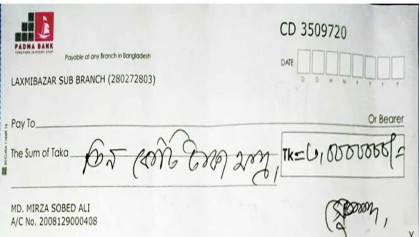 PADMA BANK
CD 3509720
Payable at any Branch in Bangladesh
DATE
D D M M Y Y Y Y
LAXMIBAZAR SUB BRANCH (280272803)
Pay To
Or Bearer
The Sum of Taka তিন কোটি টাকা মাত্র,
Tk=৩,০০০০০০০/=
MD. MIRZA SOBED ALI
A/C No. 2008129000408